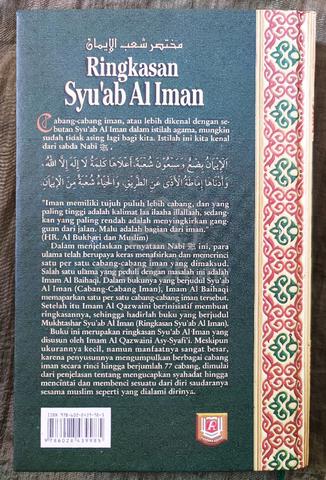 مختصر شعب الإيمان
Ringkasan
Syu'ab Al Iman
Cabang-cabang iman, atau lebih dikenal dengan se-
butan Syu'ab Al Iman dalam istilah agama, mungkin
sudah tidak asing lagi bagi kita. Istilah ini kita kenal
dari sabda Nabi ﷺ,
الإِيْمَانُ بِضْعٌ وَسَبْعُونَ شُعْبَةً، أَعْلَاهَا كَلِمَةُ لَا إِلَهَ إِلَّا اللهُ،
وَأَدْنَاهَا إِمَاطَةُ الْأَذَى عَنِ الطَّرِيْقِ، وَالْحَيَاءُ شُعْبَةٌ مِنَ الْإِيْمَانِ.
"Iman memiliki tujuh puluh lebih cabang, dan yang
paling tinggi adalah kalimat laa ilaaha illallaah, sedang-
kan yang paling rendah adalah menyingkirkan gang-
guan dari jalan. Malu adalah bagian dari iman."
(HR. Al Bukhari dan Muslim)
Dalam menjelaskan pernyataan Nabi ﷺ ini, para
ulama telah berupaya keras menafsirkan dan memerinci
satu per satu cabang-cabang iman yang dimaksud.
Salah satu ulama yang peduli dengan masalah ini adalah
Imam Al Baihaqi. Dalam bukunya yang berjudul Syu'ab
Al Iman (Cabang-Cabang Iman), Imam Al Baihaqi
memaparkan satu per satu cabang-cabang iman tersebut.
Setelah itu Imam Al Qazwaini berinisiatif membuat
ringkasannya, sehingga hadirlah buku yang berjudul
Mukhtashar Syu'ab Al Iman (Ringkasan Syu'ab Al Iman).
Buku ini merupakan ringkasan Syu'ab Al Iman yang
disusun oleh Imam Al Qazwaini Asy-Syafi'i. Meskipun
ukurannya kecil, namun manfaatnya sangat besar,
karena penyusunnya mengumpulkan berbagai cabang
iman secara rinci hingga berjumlah 77 cabang, dimulai
dari penjelasan tentang mengucapkan syahadat hingga
mencintai dan membenci sesuatu dari diri saudaranya
sesama muslim seperti yang dialami dirinya.